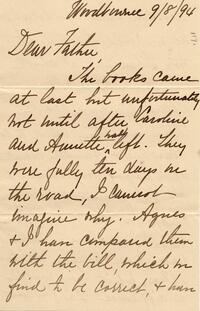 Woodbourne 9/8/94
Dear Father,
The books came
at last but unfortunately
not until after Caroline
and Annette had left. They
were fully ten days on
the road, I cannot
imagine why. Agnes
& I have compared them
with the bill, which we
find to be correct, & have